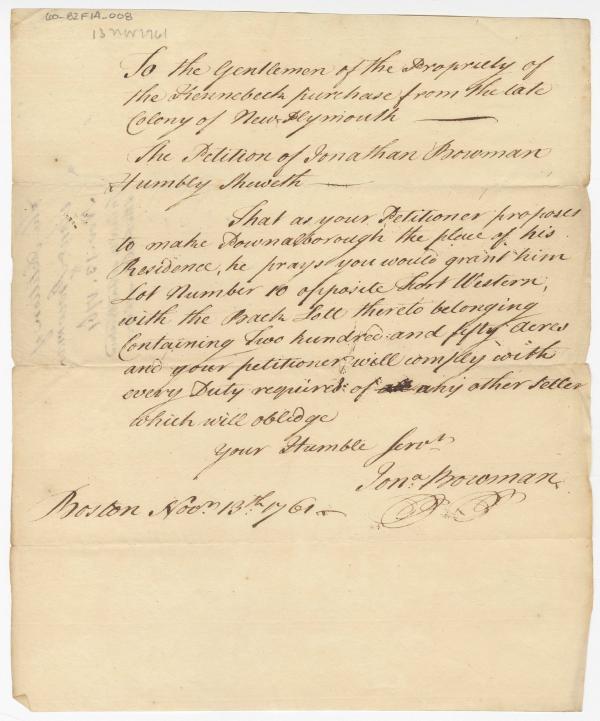 60-82F1A-008
13 Nov 1761
To the Gentlemen of the Propriety of
the Kennebeck purchase from the late
Colony of New Plymouth
The Petition of Jonathan Bowman
Humbly Sheweth
That as your Petitioner proposes
to make Pownalborough the place of his
Residence, he prays you would grant him
Lot Number 10 opposite Fort Western,
with the Back Lott thereto belonging
Containing Two hundred and fifty Acres
and your petitioner will comply with
every Duty required of any other Setler
which will oblidge
Your Humble Servt
Jona. Bowman
Boston Novr 13th 1761